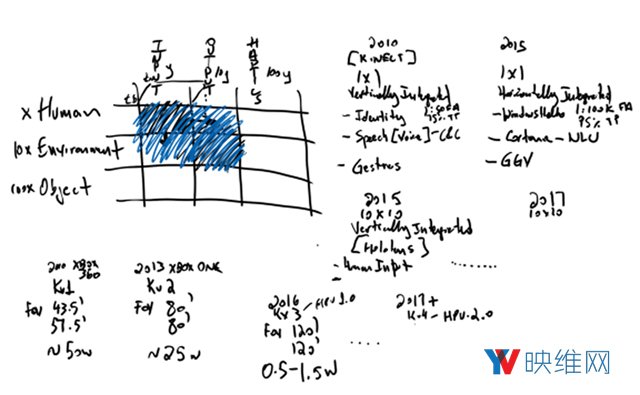 INPUT
OUTPUT
HABITS
y
10y
100y
x Human
10x Environment
100x Object
2010
[KINECT]
1x1
Vertically Integrated
- Identity
- Speech [Voice] - C&C
- Gestures
2015
1x1
Horizontally Integrated
- Windows Hello
1:100K FA
95% TP
- Cortana - NLU
- GGV
2015
10x10
Vertically Integrated
[Hololens]
- Human Input
........
2017
10x10
XBOX
360
Kv1
FoV 43.5°
57.5°
~50W
2013 XBOX ONE
Kv2
FoV 80°
80°
~25W
2016
Kv3 - HPU 1.0
FoV 120°
120°
0.5-1.5W
....
2017+
K.4 - HPU.2.0
YV 映维网